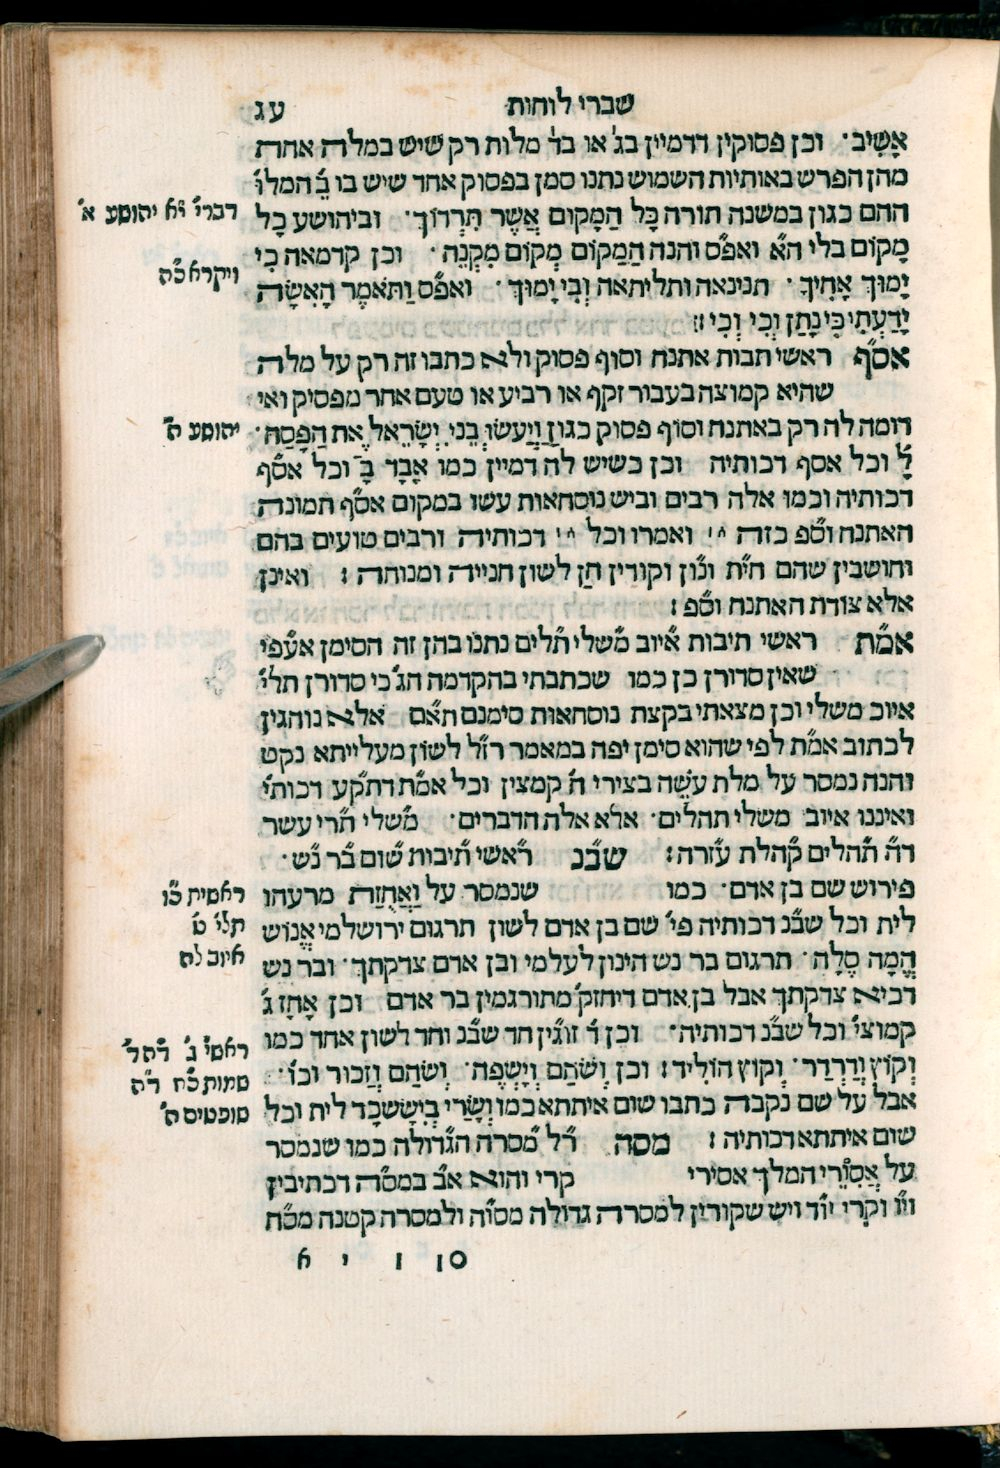 שברי לוחות עג
אָשִׁיב׳ וכן פסוקין דדמיין בג׳ או בד׳ מלות רק שיש במלה אחת
מהן הפרש באותיות השמוש נתנו סמן בפסוק אחד שיש בו ב̈ המלו׳
ההם כגון במשנה תורה כָּל הַמָקוֹם אֲשֶׁר תִּדְרוֹךְ׳ וביהושע כָל
מָקוֹם בלי ה״א ואפ״ס והנה הַמַקוֹם מְקוֹם מִקְנֶה׳ וכן קדמאה כִי
יָמוּךְ אָחִיךָ׳ תנינאה ותליתאה וְכִי יָמוּךְ׳ ואפ״ס וַתֹאמֶר הָאִשָׁה
יָדַעְתִי כִּי נָתַן וְכִי וְכִי ׃
אס״ף ראשי תבות אתנח וסוף פסוק ולא כתבו זה רק על מלה
שהיא קמוצה בעבור זקף או רביע או טעם אחר מפסיק ואי׳
דומה לה רק באתנח וסוף פסוק כגון וַיַעֲשׂוּ בְנֵי יִשְׂרָאֵל אֶת הַפָּסַח׳
ל̇ וכל אסף דכותיה וכן כשיש לה דמיין כמו אָבָד בָ̈ וכל אס״ף
דכותיה וכמו אלה רבים וביש נוסחאות עשו במקום אס״ף תמונה
האתנח וס״פ כזה ^׀ ואמרו וכל ^׀ דכותיה ורבים טועים בהם
וחושבין שהם חי״ת ונו״ן וקורין חן לשון חנייה ומנוחה ׃ ואינן
אלא צורת האתנח וס״פ ׃
אמ״ת ראשי תיבות א״יוב מ״שלי ת״לים נתנו בהן זה הסימן אעפ״י
שאין סדורן כן כמו שכתבתי בהקדמה הג׳ כי סדורן תלי׳
איוב משלי וכן מצאתי בקצת נוסחאות סימנם תא״ם אלא נוהגין
לכתוב אמ״ת לפי שהוא סימן יפה במאמר רז״ל לשון מעלייתא נקט
והנה נמסר על מלת עֹשֵה בצירי ה׳ קמצין וכל אמ״ת דתק״ע דכותי׳
ואיננו איוב משלי תהלים׳ אלא אלה הדברים׳ מ״שלי ת״רי עשר
ד״ה ת״הלים ק״הלת ע״זרה ׃ שב״נ ר״אשי ת״יבות ש״ום ב״ר נ״ש׳
פירוש שם בן אדם׳ כמו שנמסר על וַאֲחֻזַת מרעהו
לית וכל שב״נ דכותיה פי׳ שם בן אדם לשון תרגום ירושלמי אֱנוֹשׁ
הֵמָה סֶלָה׳ תרגום בר נש הינון לעלמי ובן אדם צדקתך׳ ובר נש
דכיא צדקתך אבל בן אדם דיחזק׳ מתורגמין בר אדם וכן אָחָז ג̇
קמוצי׳ וכל שב״נ דכותיה׳ וכן ד̇ זוגין חד שב״נ וחד לשון אחד כמו
וְקוֹץ וְדַרְדַר׳ וְקוֹץ הוֹלִיד ׃ וכן וְשֹׁהַם וְיָשְׁפֶה׳ וְשֹׁהַם וְזַכוּר וכו׳׳
אבל על שם נקבה כתבו שום איתתא כמו וְשָׂרַי בְיִשָּׂשכָר לית וכל
שום איתתא דכותיה ׃ מסה ר״ל מ״סרה ה״גדולה כמו שנמסר
על אֲסוּרֵי המלך אסירי קרי והוא א״ב במס״ה דכתיבין
וי״ו וקרי יו״ד ויש שקורין למסרה גדולה מסו״ה ולמסרה קטנה מכ״ח
סו ו י א
דברי׳ י״א יהושע א׳
ויקרא כ״ח
יהושע ה׳
ראשית כ״ו
תלי׳ ט׳
איוב לח
ראשי׳ ג׳ ד״הל׳
שמות כ״ח ד״ה
שופטים ה׳